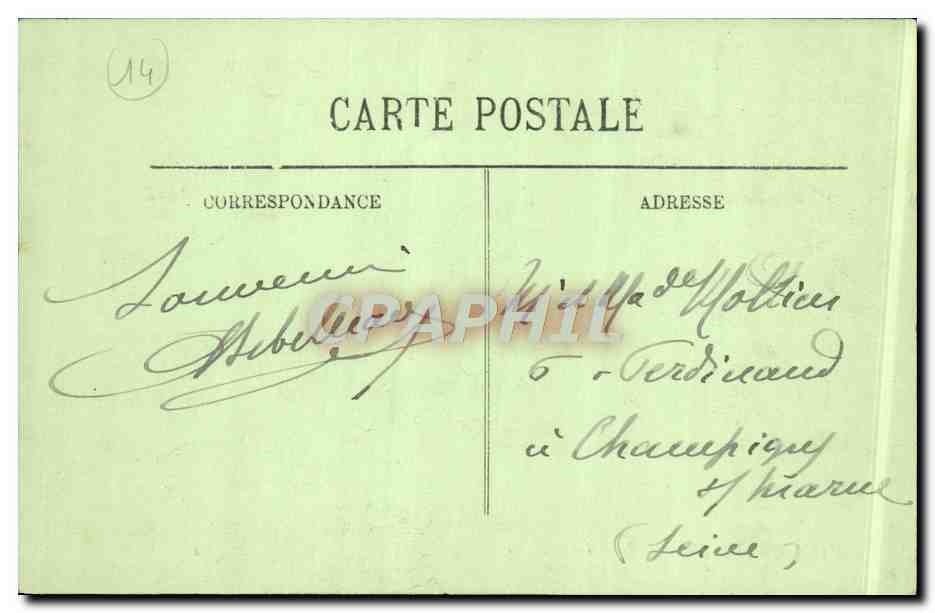 14
CARTE POSTALE
CORRESPONDANCE
Souvenir
ADRESSE
Mr et Made
6 r Ferdinand
à Champigny
s/ Marne
(Seine)
CPAPHIL